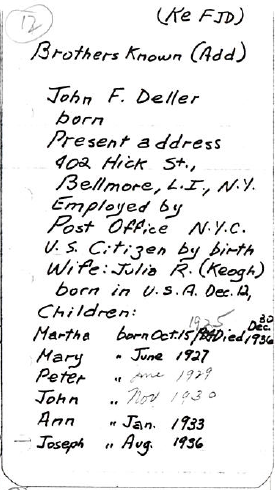 12
(Ke FJD)
Brothers Known (Add)
John F. Deller
born
Present address
402 Hick St.,
Bellmore, L.I., N.Y.
Employed by
Post Office N.Y.C.
U.S. Citizen by birth
Wife: Julia R. (Keogh)
born in U.S.A. Dec. 12,
Children:
Martha born Oct. 15/ 1925 Died Dec. 30 1936
Mary " June 1927
Peter " June 1929
John " Nov 1930
Ann " Jan. 1933
Joseph " Aug. 1936